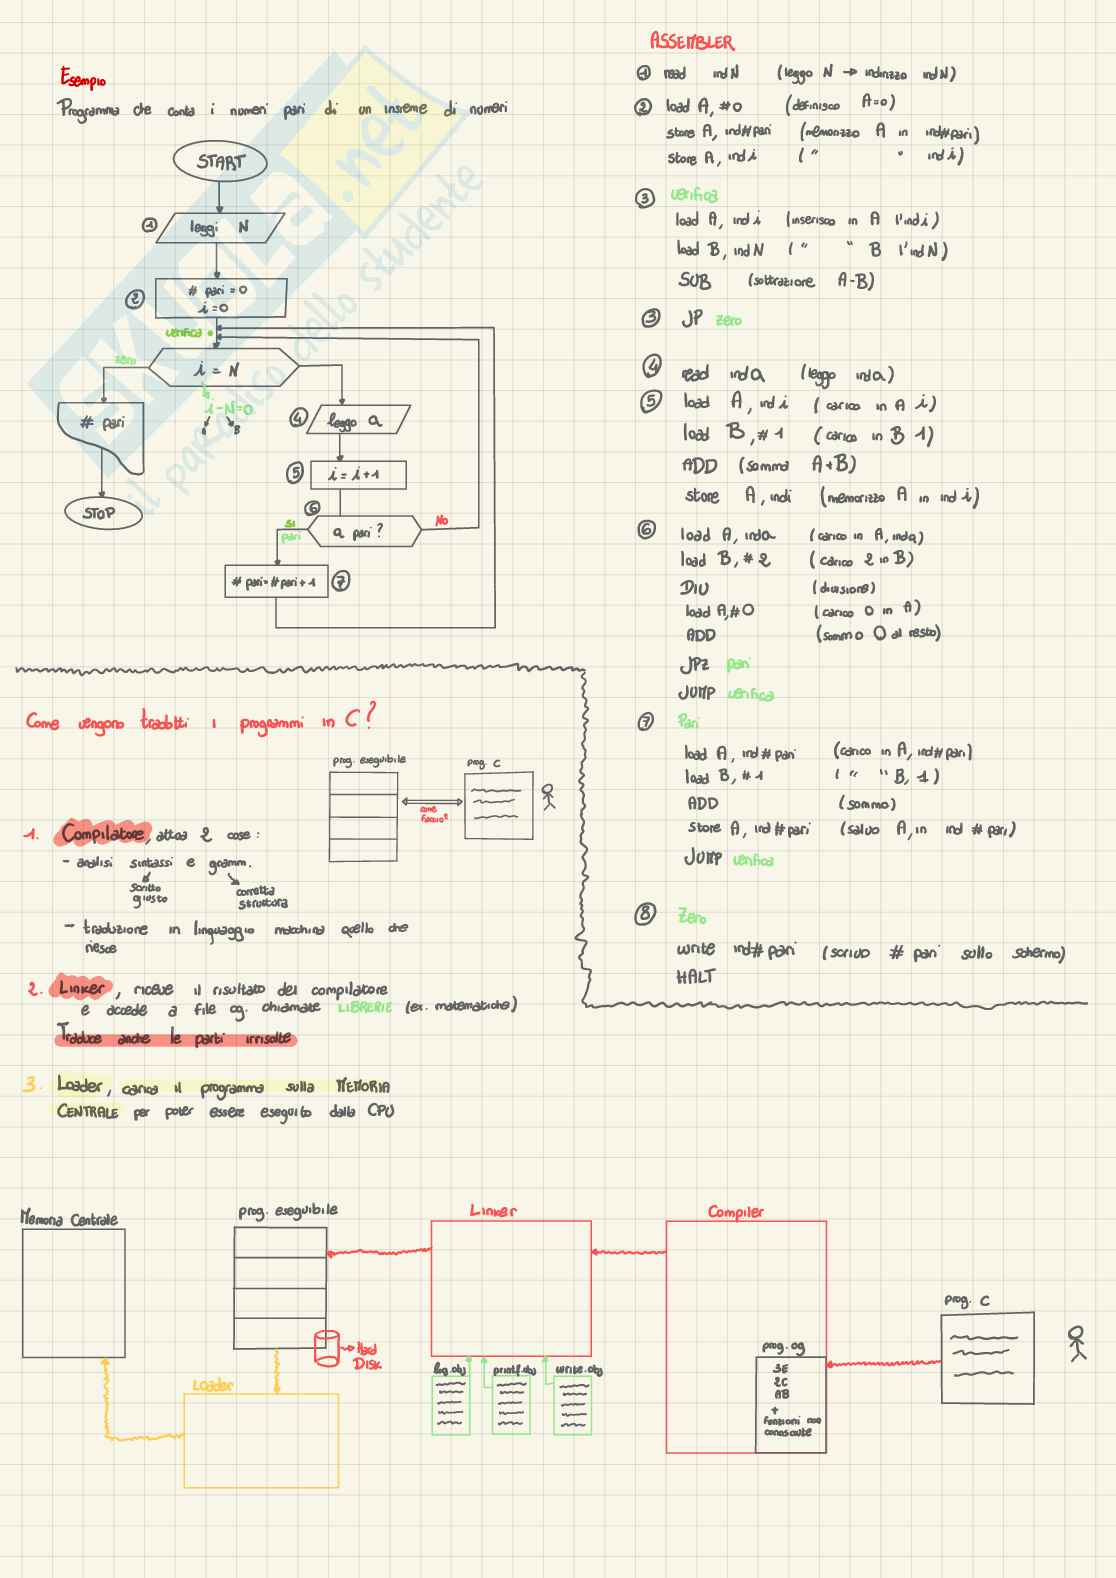 Esempio
Programma che conta i numeri pari di un insieme di numeri
START
1 leggi N
2 # pari = 0
i = 0
verifica
zero
i = N
i - N = 0
A B
# pari
STOP
4 leggo a
5 i = i + 1
6 a pari ?
SI
pari
No
# pari = # pari + 1 7
SKUOLA.net
il paradiso dello studente
ASSEMBLER
1 read ind N (leggo N → indirizzo ind N)
2 load A, #0 (definisco A=0)
store A, ind#pari (memorizzo A in ind#pari)
store A, ind i (" " ind i)
3 verifica
load A, ind i (inserisco in A l'ind i)
load B, ind N (" " B l'ind N)
SUB (sottrazione A-B)
3 JP zero
4 read ind a (leggo ind a)
5 load A, ind i (carico in A i)
load B, #1 (carico in B 1)
ADD (somma A+B)
store A, ind i (memorizzo A in ind i)
6 load A, ind a (carico in A, ind a)
load B, #2 (carico 2 in B)
DIV (divisione)
load A, #0 (carico 0 in A)
ADD (sommo 0 al resto)
JPZ pari
JUMP verifica
7 Pari
load A, ind#pari (carico in A, ind#pari)
load B, #1 (" " B, 1)
ADD (sommo)
store A, ind#pari (salvo A, in ind #pari)
JUMP verifica
8 Zero
write ind#pari (scrivo # pari sullo schermo)
HALT
Come vengono tradotti i programmi in C?
prog. eseguibile
prog. C
come faccio?
1. Compilatore, attua 2 cose:
- analisi sintassi e gramm.
scritto
giusto
corretta
struttura
- traduzione in linguaggio macchina quello che
riesce
2. Linker, riceve il risultato del compilatore
e accede a file og. chiamate LIBRERIE (ex. matematiche)
Traduce anche le parti irrisolte
3. Loader, carica il programma sulla MEMORIA
CENTRALE per poter essere eseguito dalla CPU
Memoria Centrale
prog. eseguibile
Linker
Compiler
prog. C
Hard
Disk
Loader
log.obj
printf.obj
write.obj
prog.og
3E
2C
AB
+
funzioni non
conosciute